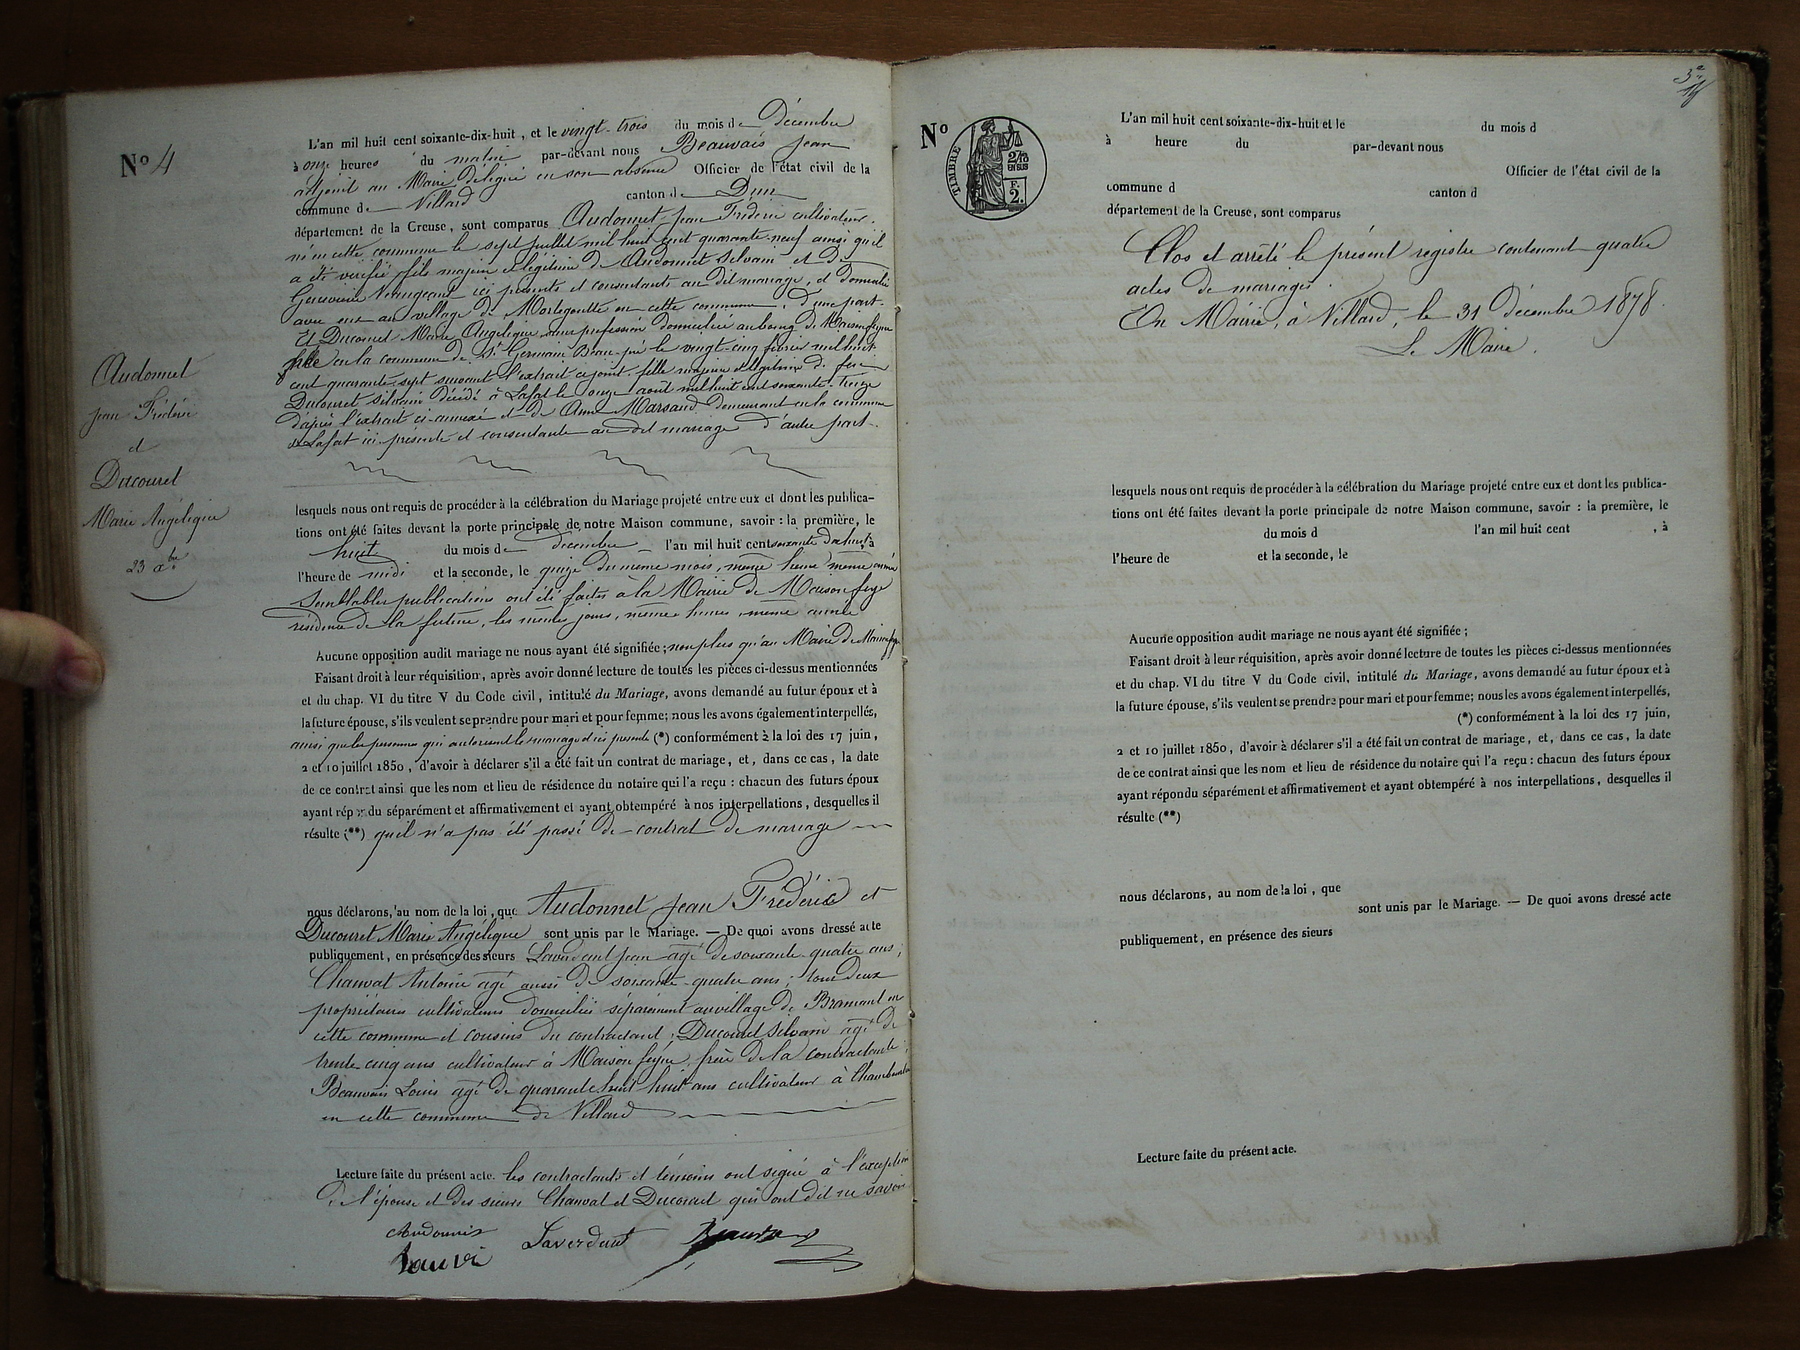 Nº 4
L'an mil huit cent soixante-dix-huit, et le vingt-trois du mois de Décembre
à onze heures du matin par-devant nous Beauvais Jean
adjoint au Maire délégué en son absence Officier de l'état civil de la
commune de Villard canton de Dun
département de la Creuse, sont comparus Audonnet Jean Frédéric cultivateur.
né en cette commune le sept juillet mil huit cent quarante-neuf ainsi qu'il
a été vérifié, fils majeur et légitime de Audonnet Silvain et de
Geneviève ici présents et consentants au dit mariage, et domicilié
avec eux au village de Mortegoutte en cette commune, d'une part.
Et Ducouret Marie Angélique sans profession domiciliée au bourg de Maisonfeyne
née en la commune de St Germain Beau-pré le vingt-cinq février mil huit
cent quarante-sept suivant l'extrait ci-joint. fille majeure et légitime de feu
Ducouret Silvain décédé à Lafat le onze août mil huit cent soixante-treize
d'après l'extrait ci-annexé et de Anne Marsaud demeurant en la commune
de Lafat ici présente et consentante au dit mariage d'autre part.
Audonnet
Jean Frédéric
et
Ducouret
Marie Angélique
23 Xbre
lesquels nous ont requis de procéder à la célébration du Mariage projeté entre eux et dont les publica-
tions ont été faites devant la porte principale de notre Maison commune, savoir : la première, le
huit du mois de décembre l'an mil huit cent soixante dix huit, à
l'heure de midi et la seconde, le quinze du même mois, même heure même année
Semblables publications ont été faites à la Mairie de Maisonfeyne
résidence de la future, les mêmes jours, même heures, même année
Aucune opposition audit mariage ne nous ayant été signifiée ; non plus qu'au Maire de Maisonfeyne
Faisant droit à leur réquisition, après avoir donné lecture de toutes les pièces ci-dessus mentionnées
et du chap. VI du titre V du Code civil, intitulé du Mariage, avons demandé au futur époux et à
la future épouse, s'ils veulent se prendre pour mari et pour femme; nous les avons également interpellés,
ainsi que les personnes qui autorisent le mariage et ici présente (*) conformément à la loi des 17 juin,
2 et 10 juillet 1850, d'avoir à déclarer s'il a été fait un contrat de mariage, et, dans ce cas, la date
de ce contrat ainsi que les nom et lieu de résidence du notaire qui l'a reçu : chacun des futurs époux
ayant répondu séparément et affirmativement et ayant obtempéré à nos interpellations, desquelles il
résulte (**) qu'il n'a pas été passé de contrat de mariage
nous déclarons, au nom de la loi, que Audonnet Jean Frédéric et
Ducouret Marie Angélique sont unis par le Mariage. — De quoi avons dressé acte
publiquement, en présence des sieurs Laverdant Jean âgé de soixante-quatre ans;
Chanvat Antoine âgé aussi de soixante-quatre ans; tous deux
propriétaires cultivateurs domiciliés séparément au village de Bramant en
cette commune et cousins du contractant; Ducouret Silvain âgé de
trente cinq ans cultivateur à Maisonfeyne, frère de la contractante;
Beauvais Louis âgé de quarante huit huit ans cultivateur à
en cette commune de Villard
Lecture faite du présent acte. les contractants et témoins ont signé à l'exception
de l'épouse et des sieurs Chanvat et Ducouret qui ont dit ne savoir
Audonnet Laverdant Beauvais
Nº
TIMBRE
2/10
EN SUS
F.
2.
L'an mil huit cent soixante-dix-huit et le du mois d
à heure du par-devant nous
Officier de l'état civil de la
commune d canton d
département de la Creuse, sont comparus
Clos et arrêté le présent registre contenant quatre
actes de mariages.
En Mairie, à Villard, le 31 décembre 1878.
Le Maire.
lesquels nous ont requis de procéder à la célébration du Mariage projeté entre eux et dont les publica-
tions ont été faites devant la porte principale de notre Maison commune, savoir : la première, le
du mois d l'an mil huit cent , à
l'heure de et la seconde, le
Aucune opposition audit mariage ne nous ayant été signifiée ;
Faisant droit à leur réquisition, après avoir donné lecture de toutes les pièces ci-dessus mentionnées
et du chap. VI du titre V du Code civil, intitulé du Mariage, avons demandé au futur époux et à
la future épouse, s'ils veulent se prendre pour mari et pour femme; nous les avons également interpellés,
(*) conformément à la loi des 17 juin,
2 et 10 juillet 1850, d'avoir à déclarer s'il a été fait un contrat de mariage, et, dans ce cas, la date
de ce contrat ainsi que les nom et lieu de résidence du notaire qui l'a reçu : chacun des futurs époux
ayant répondu séparément et affirmativement et ayant obtempéré à nos interpellations, desquelles il
résulte (**)
nous déclarons, au nom de la loi, que
sont unis par le Mariage. — De quoi avons dressé acte
publiquement, en présence des sieurs
Lecture faite du présent acte.